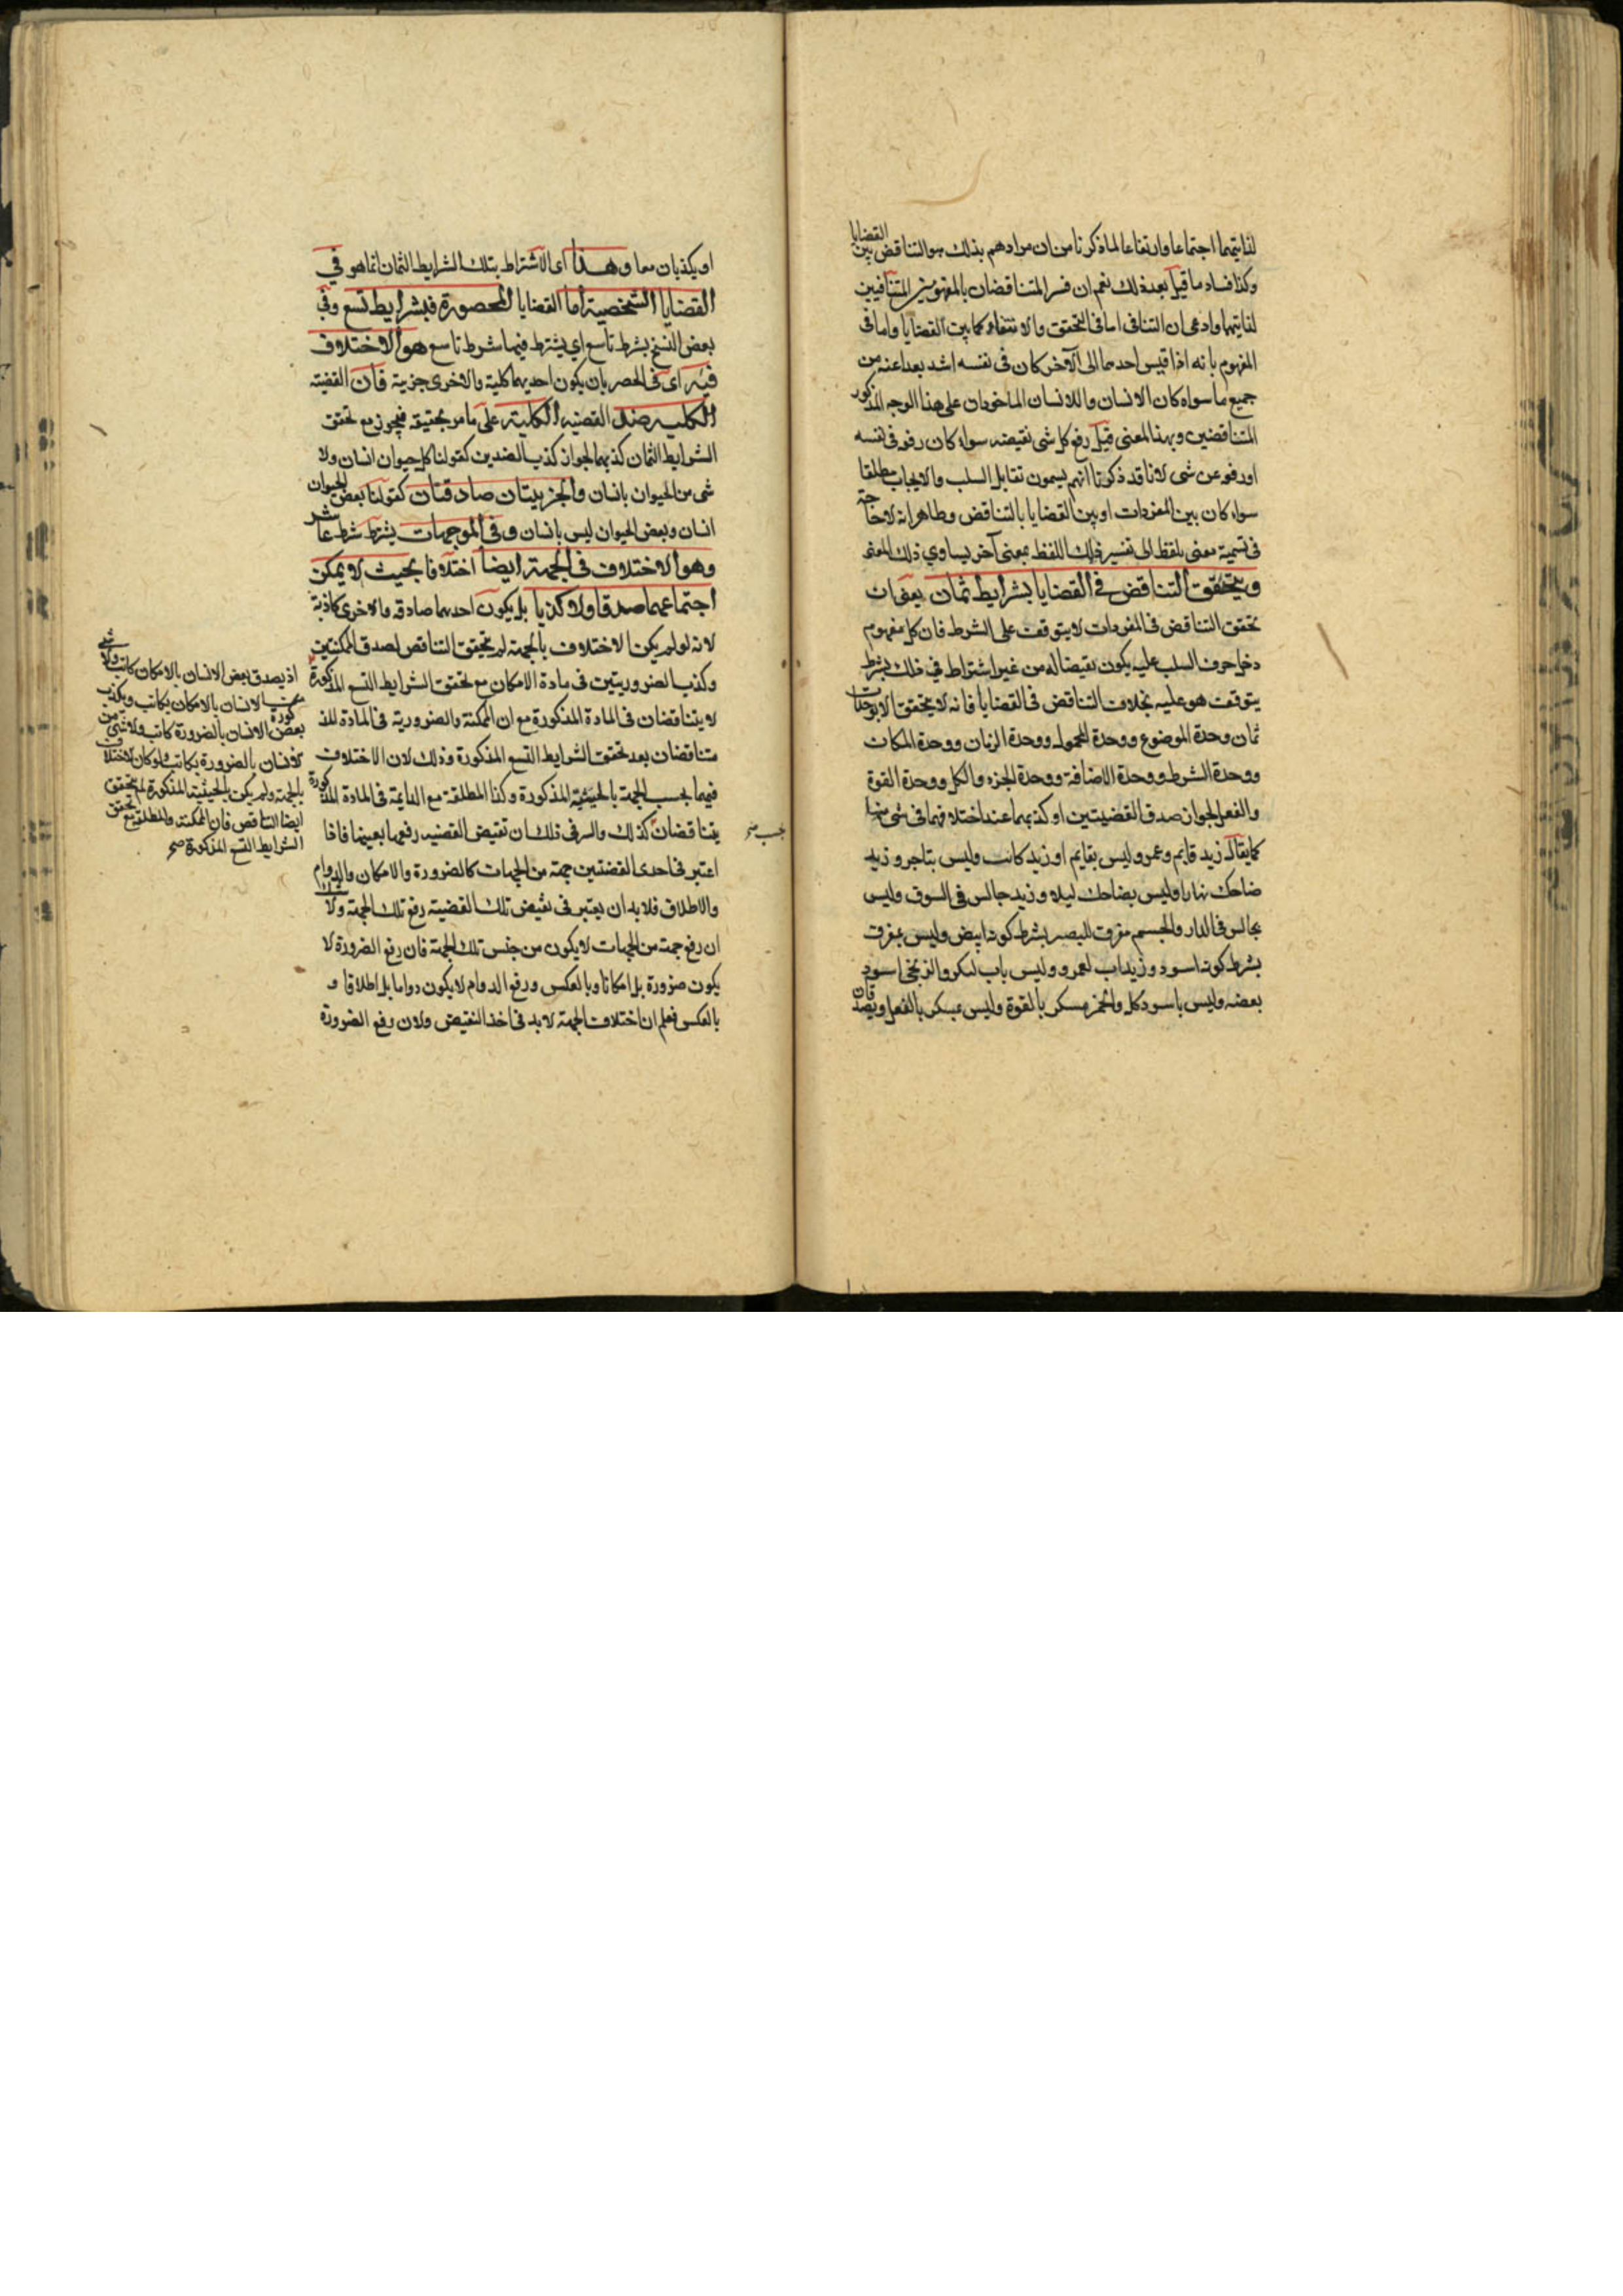 لذاتيهما اجتماعا وارتفاعا لما ذكرنا من ان مرادهم بذلك هو التناقض بين القضايا
وكذا فساد ما قيل بعد ذلك نعم ان فسر المتناقضان بالمفهومين المتنافيين
لذاتيهما وادعى ان التنافى اما فى التحقق والانتفاء كما بين القضايا واما فى
المفهوم بانه اذا قيس احدهما الى الآخر كان فى نفسه اشد بعدا عنه من
جميع ما سواه كان الانسان واللا انسان الماخوذان على هذا الوجه المذكور
المتناقضين وبهذا المعنى قيل رفع كل شى نقيضه سواء كان رفعه فى نفسه
او رفعه عن شى لانا قد ذكرنا انهم يسمون تقابل السلب والايجاب مطلقا
سواء كان بين المفردات او بين القضايا بالتناقض وظاهر انه لا حاجة
فى تسمية معنى بلفظ الى تفسير ذلك اللفظ بمعنى آخر يساوي ذلك المعنى
ويتحقق التناقض في القضايا بشرايط ثمان يعنى ان
تحقق التناقض فى المفردات لا يتوقف على الشرط فان كل مفهوم
دخل حرف السلب عليه يكون نقيضا له من غير اشتراط في ذلك بشرط
يتوقف هو عليه بخلاف التناقض فى القضايا فانه لا يتحقق الا بوحدات
ثمان وحدة الموضوع ووحدة المحمول ووحدة الزمان ووحدة المكان
ووحدة الشرط ووحدة الاضافة ووحدة الجزء والكل ووحدة القوة
والفعل لجواز صدق القضيتين او كذبهما عند اختلافهما فى شى منها
كما يقال زيد قايم وعمرو ليس بقايم او زيد كاتب وليس بتاجر وزيد
ضاحك نهارا وليس بضاحك ليلا وزيد جالس في السوق وليس
بجالس فى الدار والجسم مفرق للبصر بشرط كونه ابيض وليس بمفرق
بشرط كونه اسود وزيد اب لعمرو وليس باب لبكر والزنجى اسود
بعضه وليس باسود كله والخمر مسكر بالقوة وليس بمسكر بالفعل ويصدقان
او يكذبان معا وهذا اى الاشتراط بتلك الشرايط الثمان انما هو في
القضايا الشخصية اما القضايا المحصورة فبشرايط تسع وفى
بعض النسخ بشرط تاسع اي يشترط فيها شرط تاسع هو الاختلاف
فيه اى فى الحصر بان يكون احديهما كلية والاخرى جزية فان القضية
الكلية ضد القضية الكلية على ما مر تحقيقه فيجوز مع تحقق
الشرايط الثمان كذبهما لجواز كذب الضدين كقولنا كل حيوان انسان ولا
شى من الحيوان بانسان والجزييتان صادقتان كقولنا بعض الحيوان
انسان وبعض الحيوان ليس بانسان وفى الموجهات يشترط شرط عاشر
وهو الاختلاف فى الجهة ايضا اختلافا بحيث لا يمكن
اجتماعهما صدقا ولا كذبا بل يكون احديهما صادقه والاخرى كاذبة
لانه لو لم يكن الاختلاف بالجهة لم يتحقق التناقض لصدق الممكنتين
وكذب الضروريتين فى مادة الامكان مع تحقق الشرايط التسع المذكورة
لا يتناقضان فى المادة المذكورة مع ان الممكنة والضرورية فى المادة المذكورة
متناقضان بعد تحقق الشرايط التسع المذكورة وذلك لان الاختلاف
فيهما بحسب الجهة بالحيثية المذكورة وكذا المطلقة مع الدايمة فى المادة المذكورة
يتناقضان كذلك والسر فى ذلك ان نقيض القضيه رفعها بعينها فاذا
اعتبر فى احدى القضيتين جهة من الجهات كالضرورة والامكان والدوام
والاطلاق فلا بد ان يعتبر فى نقيض تلك القضية رفع تلك الجهة ولا شك
ان رفع جهة من الجهات لا يكون من جنس تلك الجهة فان رفع الضرورة لا
يكون ضرورة بل امكانا وبالعكس ورفع الدوام لا يكون دواما بل اطلاقا و
بالعكس فعلم ان اختلاف الجهة لا بد فى اخذ النقيض ولان رفع الضرورة
اذ يصدق بعض الانسان بالامكان كاتب ولا شى
من الانسان بالامكان بكاتب ويكذب
بعض الانسان بالضرورة كاتب ولا شى من
الانسان بالضرورة بكاتب ولو كان الاختلاف
بالجهة ولم يكن بالحيثية المذكورة لم يتحقق
ايضا التناقض فان الممكنة والمطلقة مع تحقق
الشرايط التسع المذكورة صح